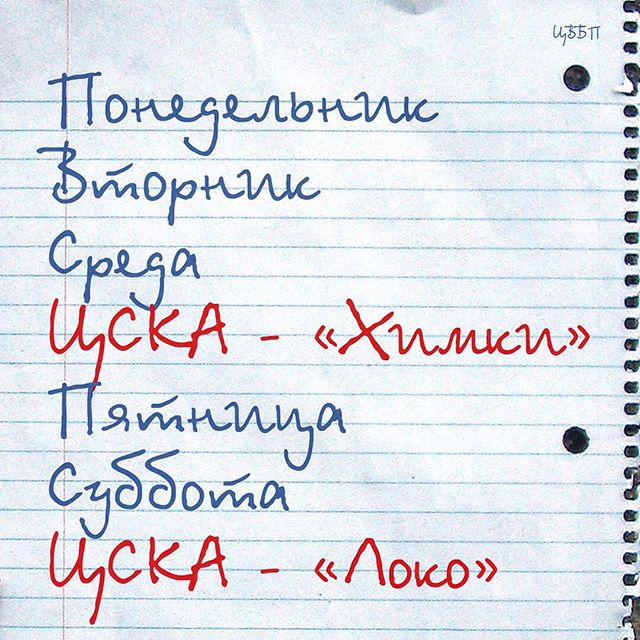 ЦББП
Понедельник
Вторник
Среда
ЦСКА - «Химки»
Пятница
Суббота
ЦСКА - «Локо»